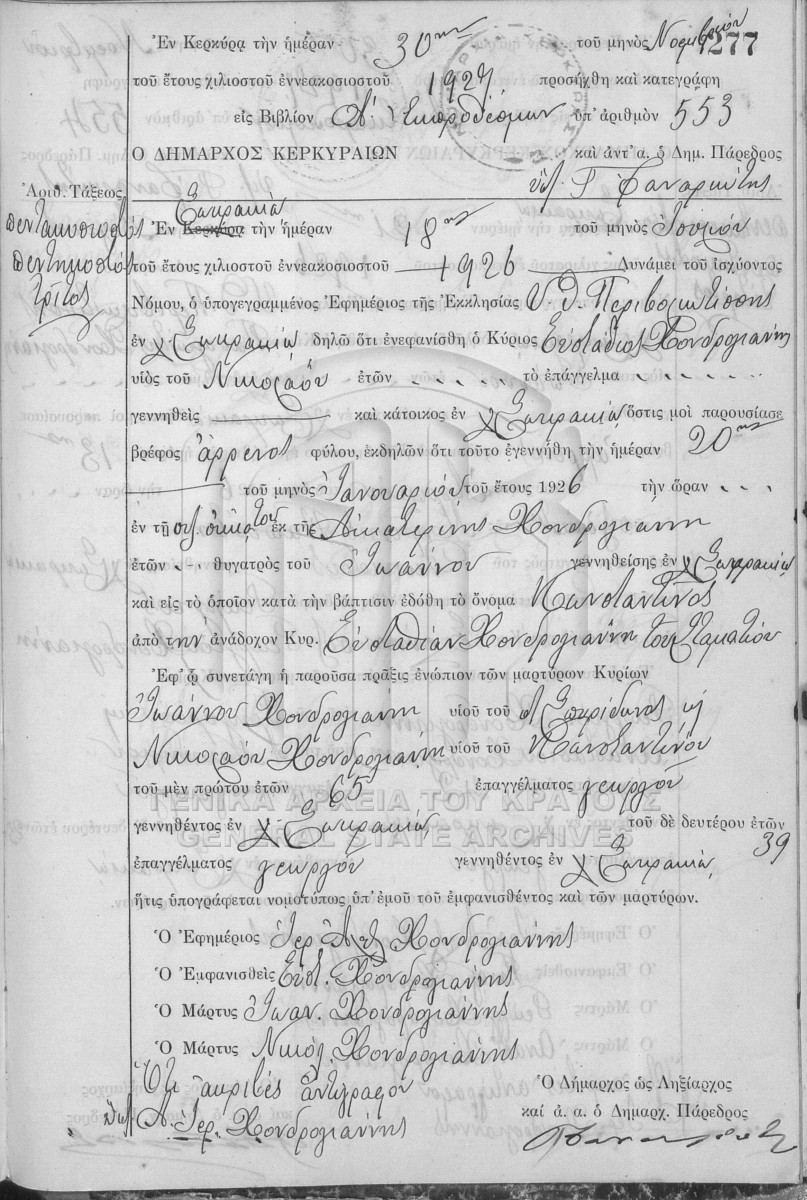 Ἐν Κερκύρᾳ τὴν ἡμέραν 30ην τοῦ μηνὸς Νοεμβρίου 277
τοῦ ἔτους χιλιοστοῦ ἐννεακοσιοστοῦ 1927 προσήχθη καὶ κατεγράφη
εἰς Βιβλίον Α' Ἐκπροθέσμων ὑπ' ἀριθμὸν 553
Ο ΔΗΜΑΡΧΟΣ ΚΕΡΚΥΡΑΙΩΝ καὶ ἀντ' α. ὁ Δημ. Πάρεδρος
Γ Φαναριώτης
Ἀριθ. Τάξεως
πεντακοσιοστὸς
πεντηκοστὸς
τρίτος
Σωκρακίᾳ
Ἐν Κερκύρᾳ τὴν ἡμέραν 18ην τοῦ μηνὸς Ἰουνίου
τοῦ ἔτους χιλιοστοῦ ἐννεακοσιοστοῦ 1926 Δυνάμει τοῦ ἰσχύοντος
Νόμου, ὁ ὑπογεγραμμένος Ἐφημέριος τῆς Ἐκκλησίας Υ. Θ. Περιβλεπτίσσης
ἐν χ Σωκρακίᾳ δηλῶ ὅτι ἐνεφανίσθη ὁ Κύριος Εὐστάθιος Χονδρογιάννης
υἱὸς τοῦ Νικολάου ἐτῶν τὸ ἐπάγγελμα
γεννηθεὶς καὶ κάτοικος ἐν χ Σωκρακίᾳ ὅστις μοὶ παρουσίασε
βρέφος ἄρρενος φύλου, ἐκδηλῶν ὅτι τοῦτο ἐγεννήθη τὴν ἡμέραν 20ην
τοῦ μηνὸς Ἰανουαρίου τοῦ ἔτους 1926 τὴν ὥραν
ἐν τῇ οἰκίᾳ του ἐκ τῆς Αἰκατερίνης Χονδρογιάννη
ἐτῶν θυγατρὸς τοῦ Ἰωάννου γεννηθείσης ἐν χ Σωκρακίᾳ
καὶ εἰς τὸ ὁποῖον κατὰ τὴν βάπτισιν ἐδόθη τὸ ὄνομα Κωνσταντῖνος
ἀπὸ τὴν ἀνάδοχον Κυρ. Εὐσταθίαν Χονδρογιάννη τοῦ Σταματίου
Ἐφ' ᾧ συνετάγη ἡ παροῦσα πρᾶξις ἐνώπιον τῶν μαρτύρων Κυρίων
Ἰωάννου Χονδρογιάννη υἱοῦ τοῦ Σπυρίδωνος
Νικολάου Χονδρογιάννη υἱοῦ τοῦ Κωνσταντίνου
τοῦ μὲν πρώτου ἐτῶν 65 ἐπαγγέλματος γεωργοῦ
ΓΕΝΙΚΑ ΑΡΧΕΙΑ ΤΟΥ ΚΡΑΤΟΥΣ
γεννηθέντος ἐν χ Σωκρακίᾳ τοῦ δὲ δευτέρου ἐτῶν 39
GENERAL STATE ARCHIVES
ἐπαγγέλματος γεωργοῦ γεννηθέντος ἐν χ Σωκρακίᾳ
ἥτις ὑπογράφεται νομοτύπως ὑπ' ἐμοῦ τοῦ ἐμφανισθέντος καὶ τῶν μαρτύρων.
Ὁ Ἐφημέριος Ἱερ Χονδρογιάννης
Ὁ Ἐμφανισθεὶς Εὐστ. Χονδρογιάννης
Ὁ Μάρτυς Ἰωαν. Χονδρογιάννης
Ὁ Μάρτυς Νικόλ. Χονδρογιάννης
Ὅτι ἀκριβὲς ἀντίγραφον
Ἱερ. Χονδρογιάννης
Ὁ Δήμαρχος ὡς Ληξίαρχος
καὶ ἀ. α. ὁ Δημαρχ. Πάρεδρος